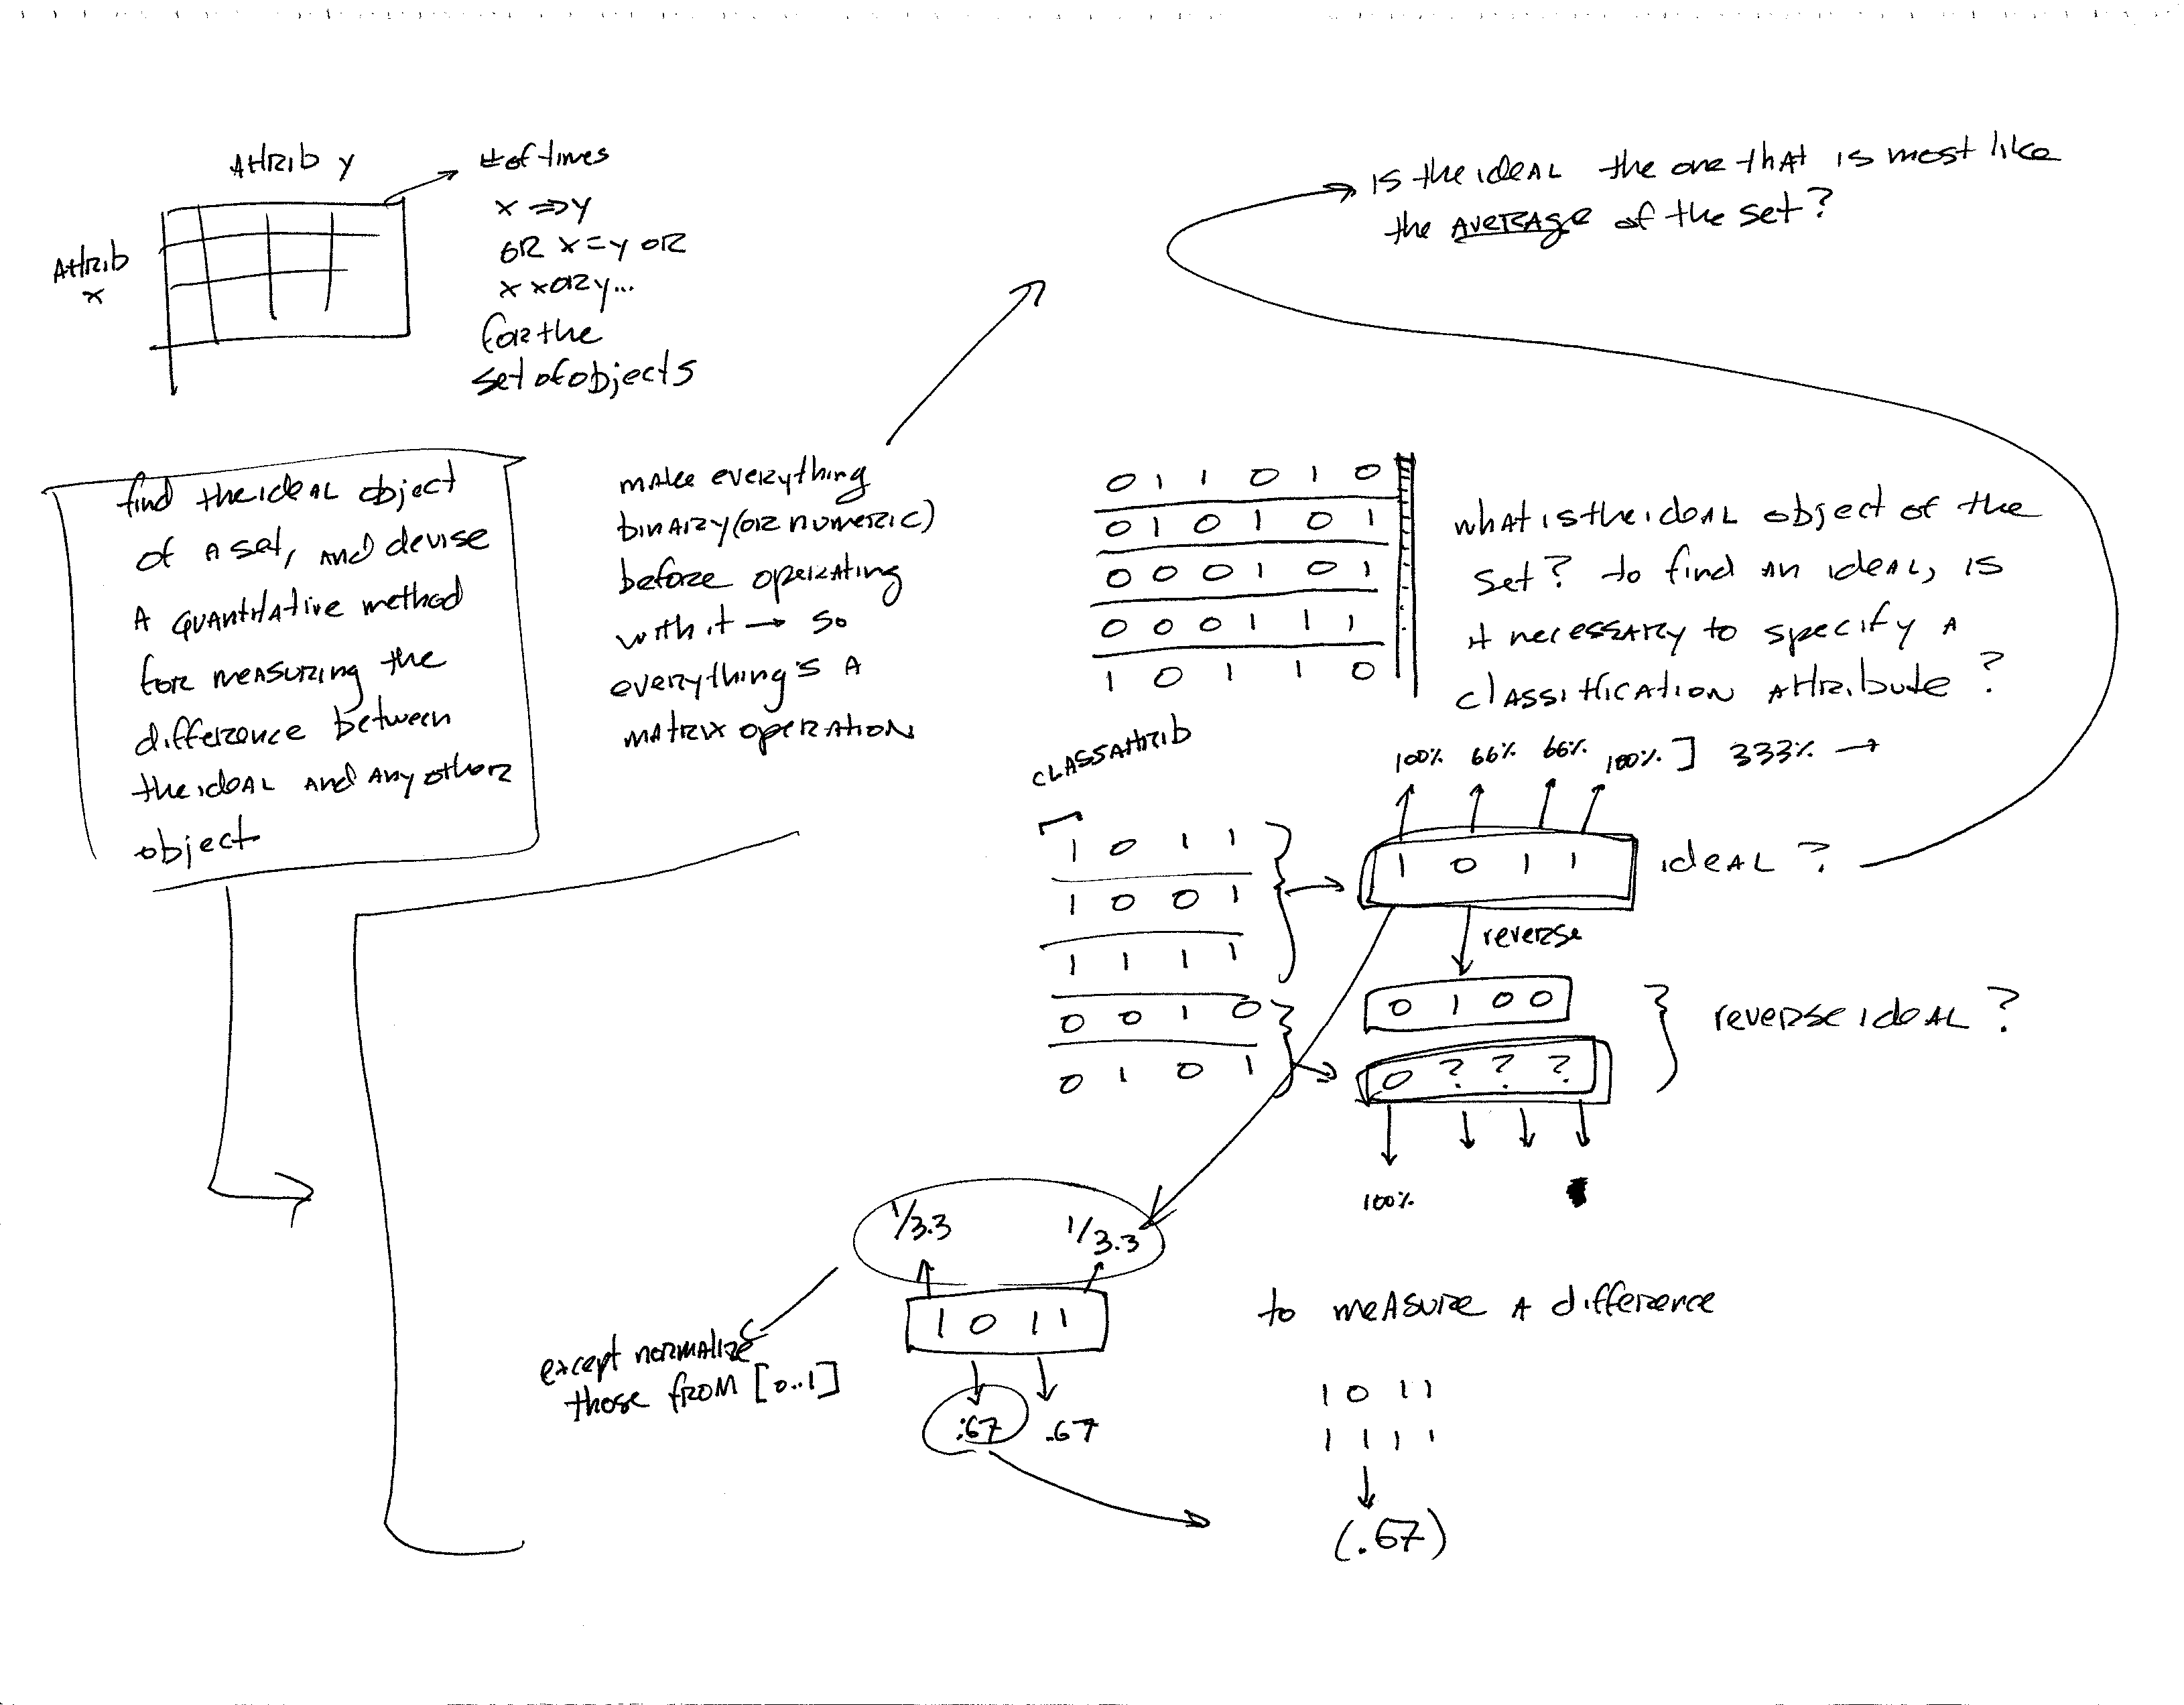 Attrib y
Attrib
x
# of times
x ⇒ y
or x = y or
x xor y...
for the
set of objects
is the ideal the one that is most like
the average of the set?
find the ideal object
of a set, and devise
a quantitative method
for measuring the
difference between
the ideal and any other
object
make everything
binary (or numeric)
before operating
with it → so
everything's a
matrix operation
0 1 1 0 1 0
0 1 0 1 0 1
0 0 0 1 0 1
0 0 0 1 1 1
1 0 1 1 0
what is the ideal object of the
set? to find an ideal, is
it necessary to specify a
classification attribute?
class attrib
1 0 1 1
1 0 0 1
1 1 1 1
0 0 1 0
0 1 0 1
100% 66% 66% 100% ] 333% →
1 0 1 1
ideal?
reverse
0 1 0 0
0 ? ? ?
reverse ideal?
100%
1/3.3 1/3.3
1 0 1 1
.67 .67
except normalize
those from [0..1]
to measure a difference
1 0 1 1
1 1 1 1
(.67)